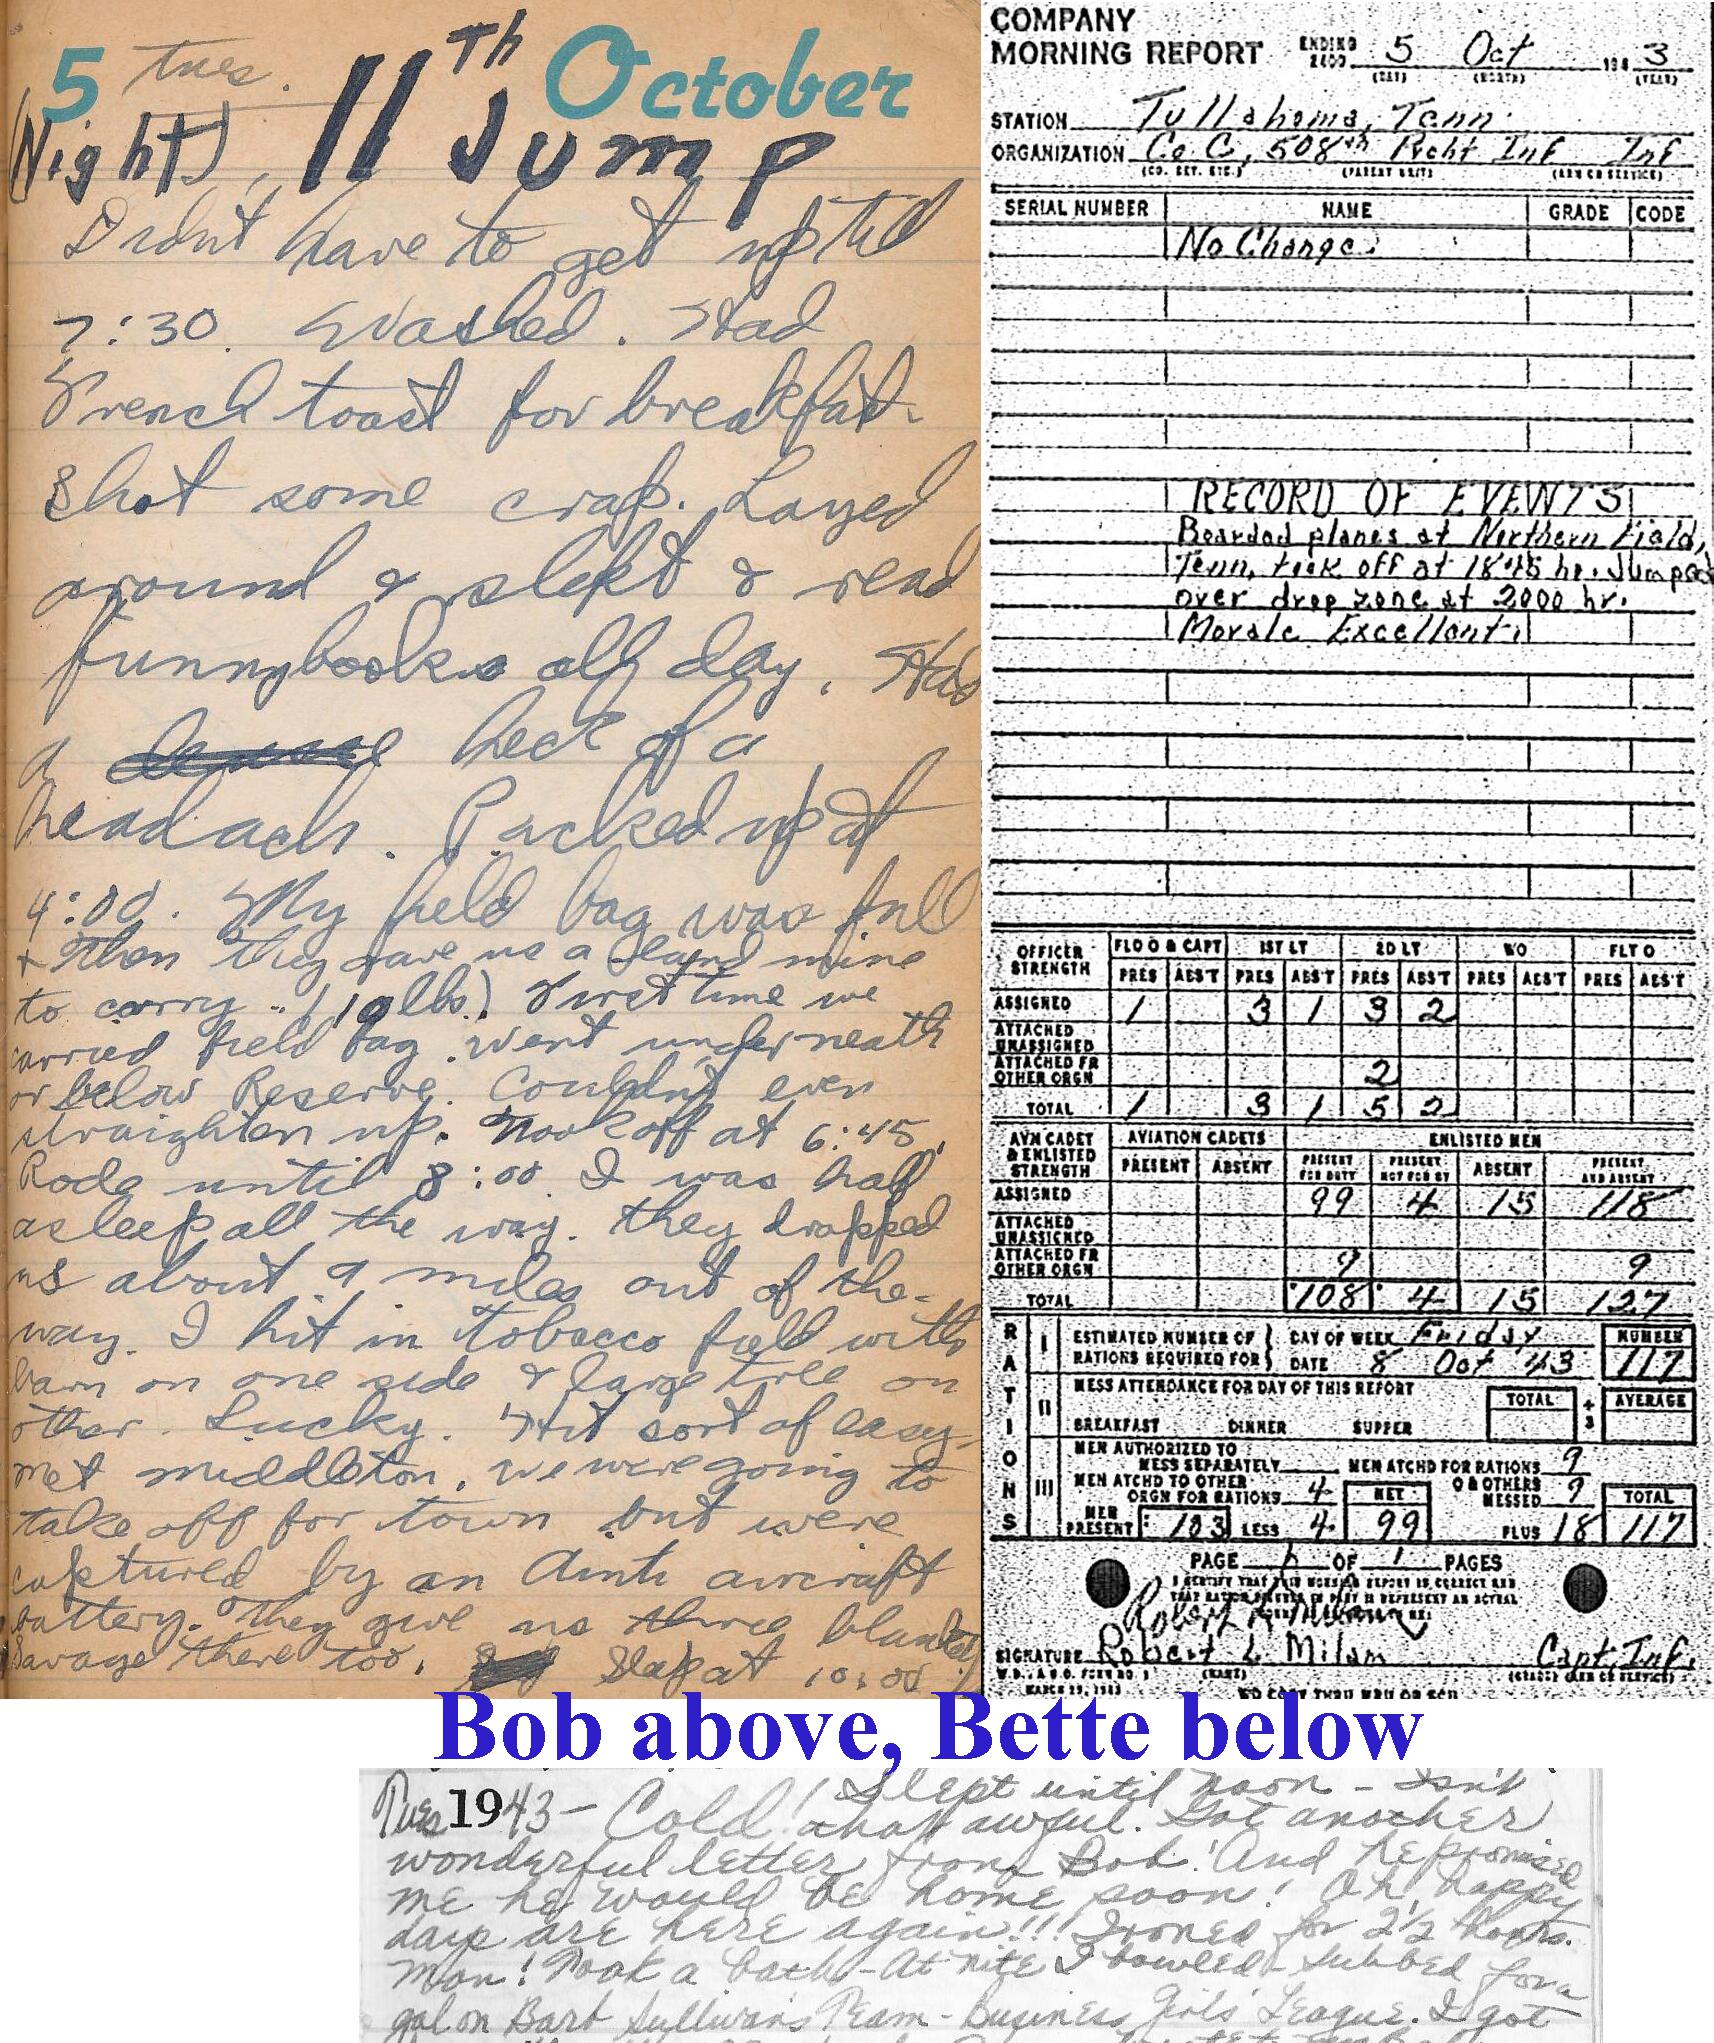 5 tues. 11Th October
(Night) 11 Jump
Didnt have to get up till
7:30. Washed. Had
French toast for breakfast.
Shot some crap. Layed
around & slept & read
funnybooks all day. Had
a heck of a
headach. Packed up at
4:00. My field bag was full
& then they gave us a land mine
to carry .. (10 lbs.) First time we
carried field bag. Went underneath
or below Reserve. Couldn't even
straighten up. Took off at 6:45.
Rode until 8:00. I was half
asleep all the way. They dropped
us about 9 miles out of the
way. I hit in tobacco field with
barn on one side & large tree on
other. Lucky. Hit sort of easy.
met middleton. we were going to
take off for town but were
captured by an Ainti aircraft
battery. They give us three blankets.
Savage there too. Slep at 10:00
COMPANY
MORNING REPORT ENDING 2400 5 Oct 194 3
(DAY) (MONTH) (YEAR)
STATION Tullahoma, Tenn.
ORGANIZATION Co C, 508th Prcht Inf Inf
(CO. DET. ETC.) (PARENT UNIT) (ARM OR SERVICE)
SERIAL NUMBER NAME GRADE CODE
No Change.
RECORD OF EVENTS
Boarded planes at Northern Field,
Tenn, took off at 1845 hr. Jumped
over drop zone at 2000 hr.
Morale Excellent.
OFFICER STRENGTH FLD O & CAPT 1ST LT 2D LT WO FLT O
PRES ABS'T PRES ABS'T PRES ABS'T PRES ABS'T PRES ABS'T
ASSIGNED 1 3 1 3 2
ATTACHED UNASSIGNED
ATTACHED FR OTHER ORGN 2
TOTAL 1 3 1 5 2
AVN CADET & ENLISTED STRENGTH AVIATION CADETS ENLISTED MEN
PRESENT ABSENT PRESENT FOR DUTY PRESENT NOT FOR DY ABSENT PRESENT AND ABSENT
ASSIGNED 99 4 15 118
ATTACHED UNASSIGNED
ATTACHED FR OTHER ORGN 9 9
TOTAL 108 4 15 127
RATIONS
I ESTIMATED NUMBER OF RATIONS REQUIRED FOR DAY OF WEEK Friday NUMBER
DATE 8 Oct 43 117
II MESS ATTENDANCE FOR DAY OF THIS REPORT TOTAL ÷ 3 AVERAGE
BREAKFAST DINNER SUPPER
III MEN AUTHORIZED TO MESS SEPARATELY MEN ATCHD FOR RATIONS 9
MEN ATCHD TO OTHER ORGN FOR RATIONS 4 NET O & OTHERS MESSED 9 TOTAL
MEN PRESENT 103 LESS 4 99 PLUS 18 117
PAGE 1 OF 1 PAGES
I CERTIFY THAT THIS MORNING REPORT IS CORRECT AND
Robert L Milam
SIGNATURE Robert L Milam Capt, Inf.
(NAME) (GRADE) (ARM OR SERVICE)
W.D., A.G.O. FORM NO. 1
MARCH 29, 1943
Bob above, Bette below
Tues 1943 – Cold! Slept until noon – Isn't
that awful. Got another
wonderful letter from Bob! And he promised
me he would be home soon! Oh, happy
days are here again!!! Ironed for 2½ hours.
Mon! Took a bath – At nite I bowled – subbed for a
gal on Barb Sullivan's Team – Business Girls' League. I got